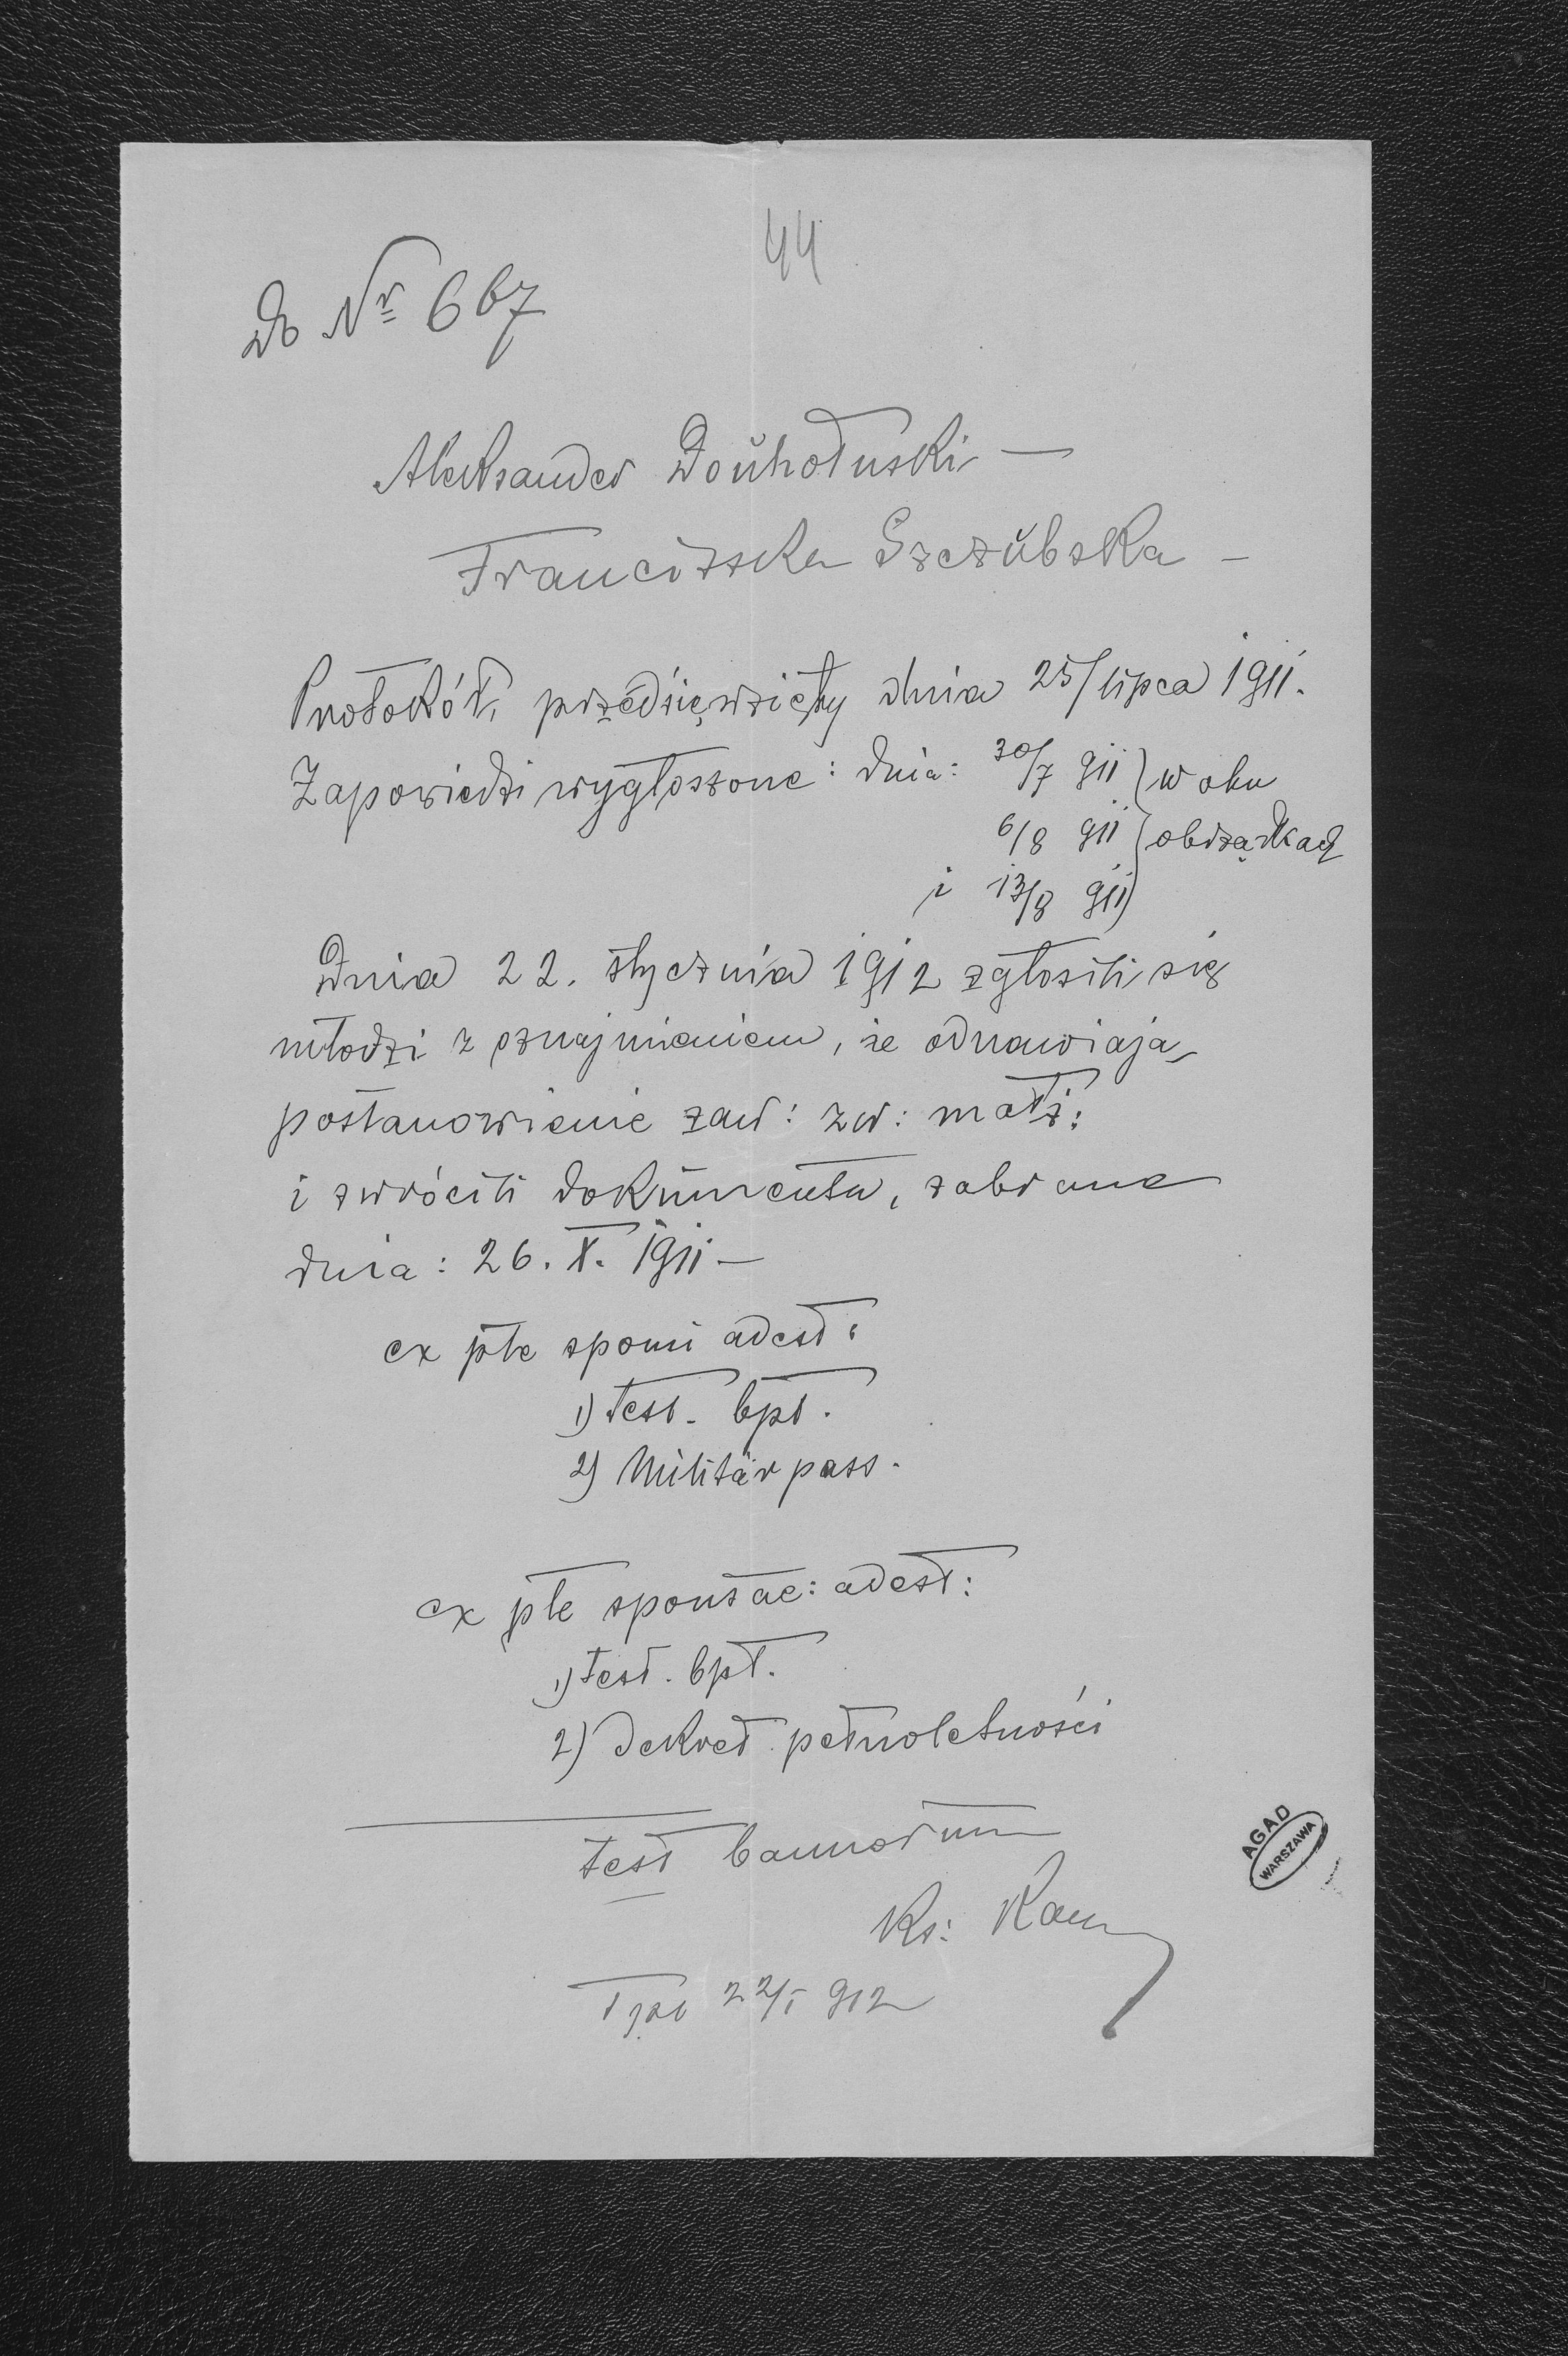 44
Do Nr 667
Aleksander Doŭhołuski —
Franciszka Szczŭbska —
Protokół, przedsięwzięty dnia 25/lipca 1911.
Zapowiedzi wygłoszone: dnia: 30/7 911 } w obu
6/8 911 } obrządkach
i 13/8 911 }
Dnia 22. stycznia 1912 zgłosili się
młodzi z oznajmieniem, że odnawiają
postanowienie zaw: zw: małż:
i zwrócili dokŭmenta, zabrane
dnia: 26. X. 1911 —
ex pte sponsi adest:
1) test. bpt.
2) Militärpass.
ex pte sponsae: adest:
1) test. bpt.
2) dekret pełnoletności
test bannorum
Ks:
22/I 912
AGAD
WARSZAWA